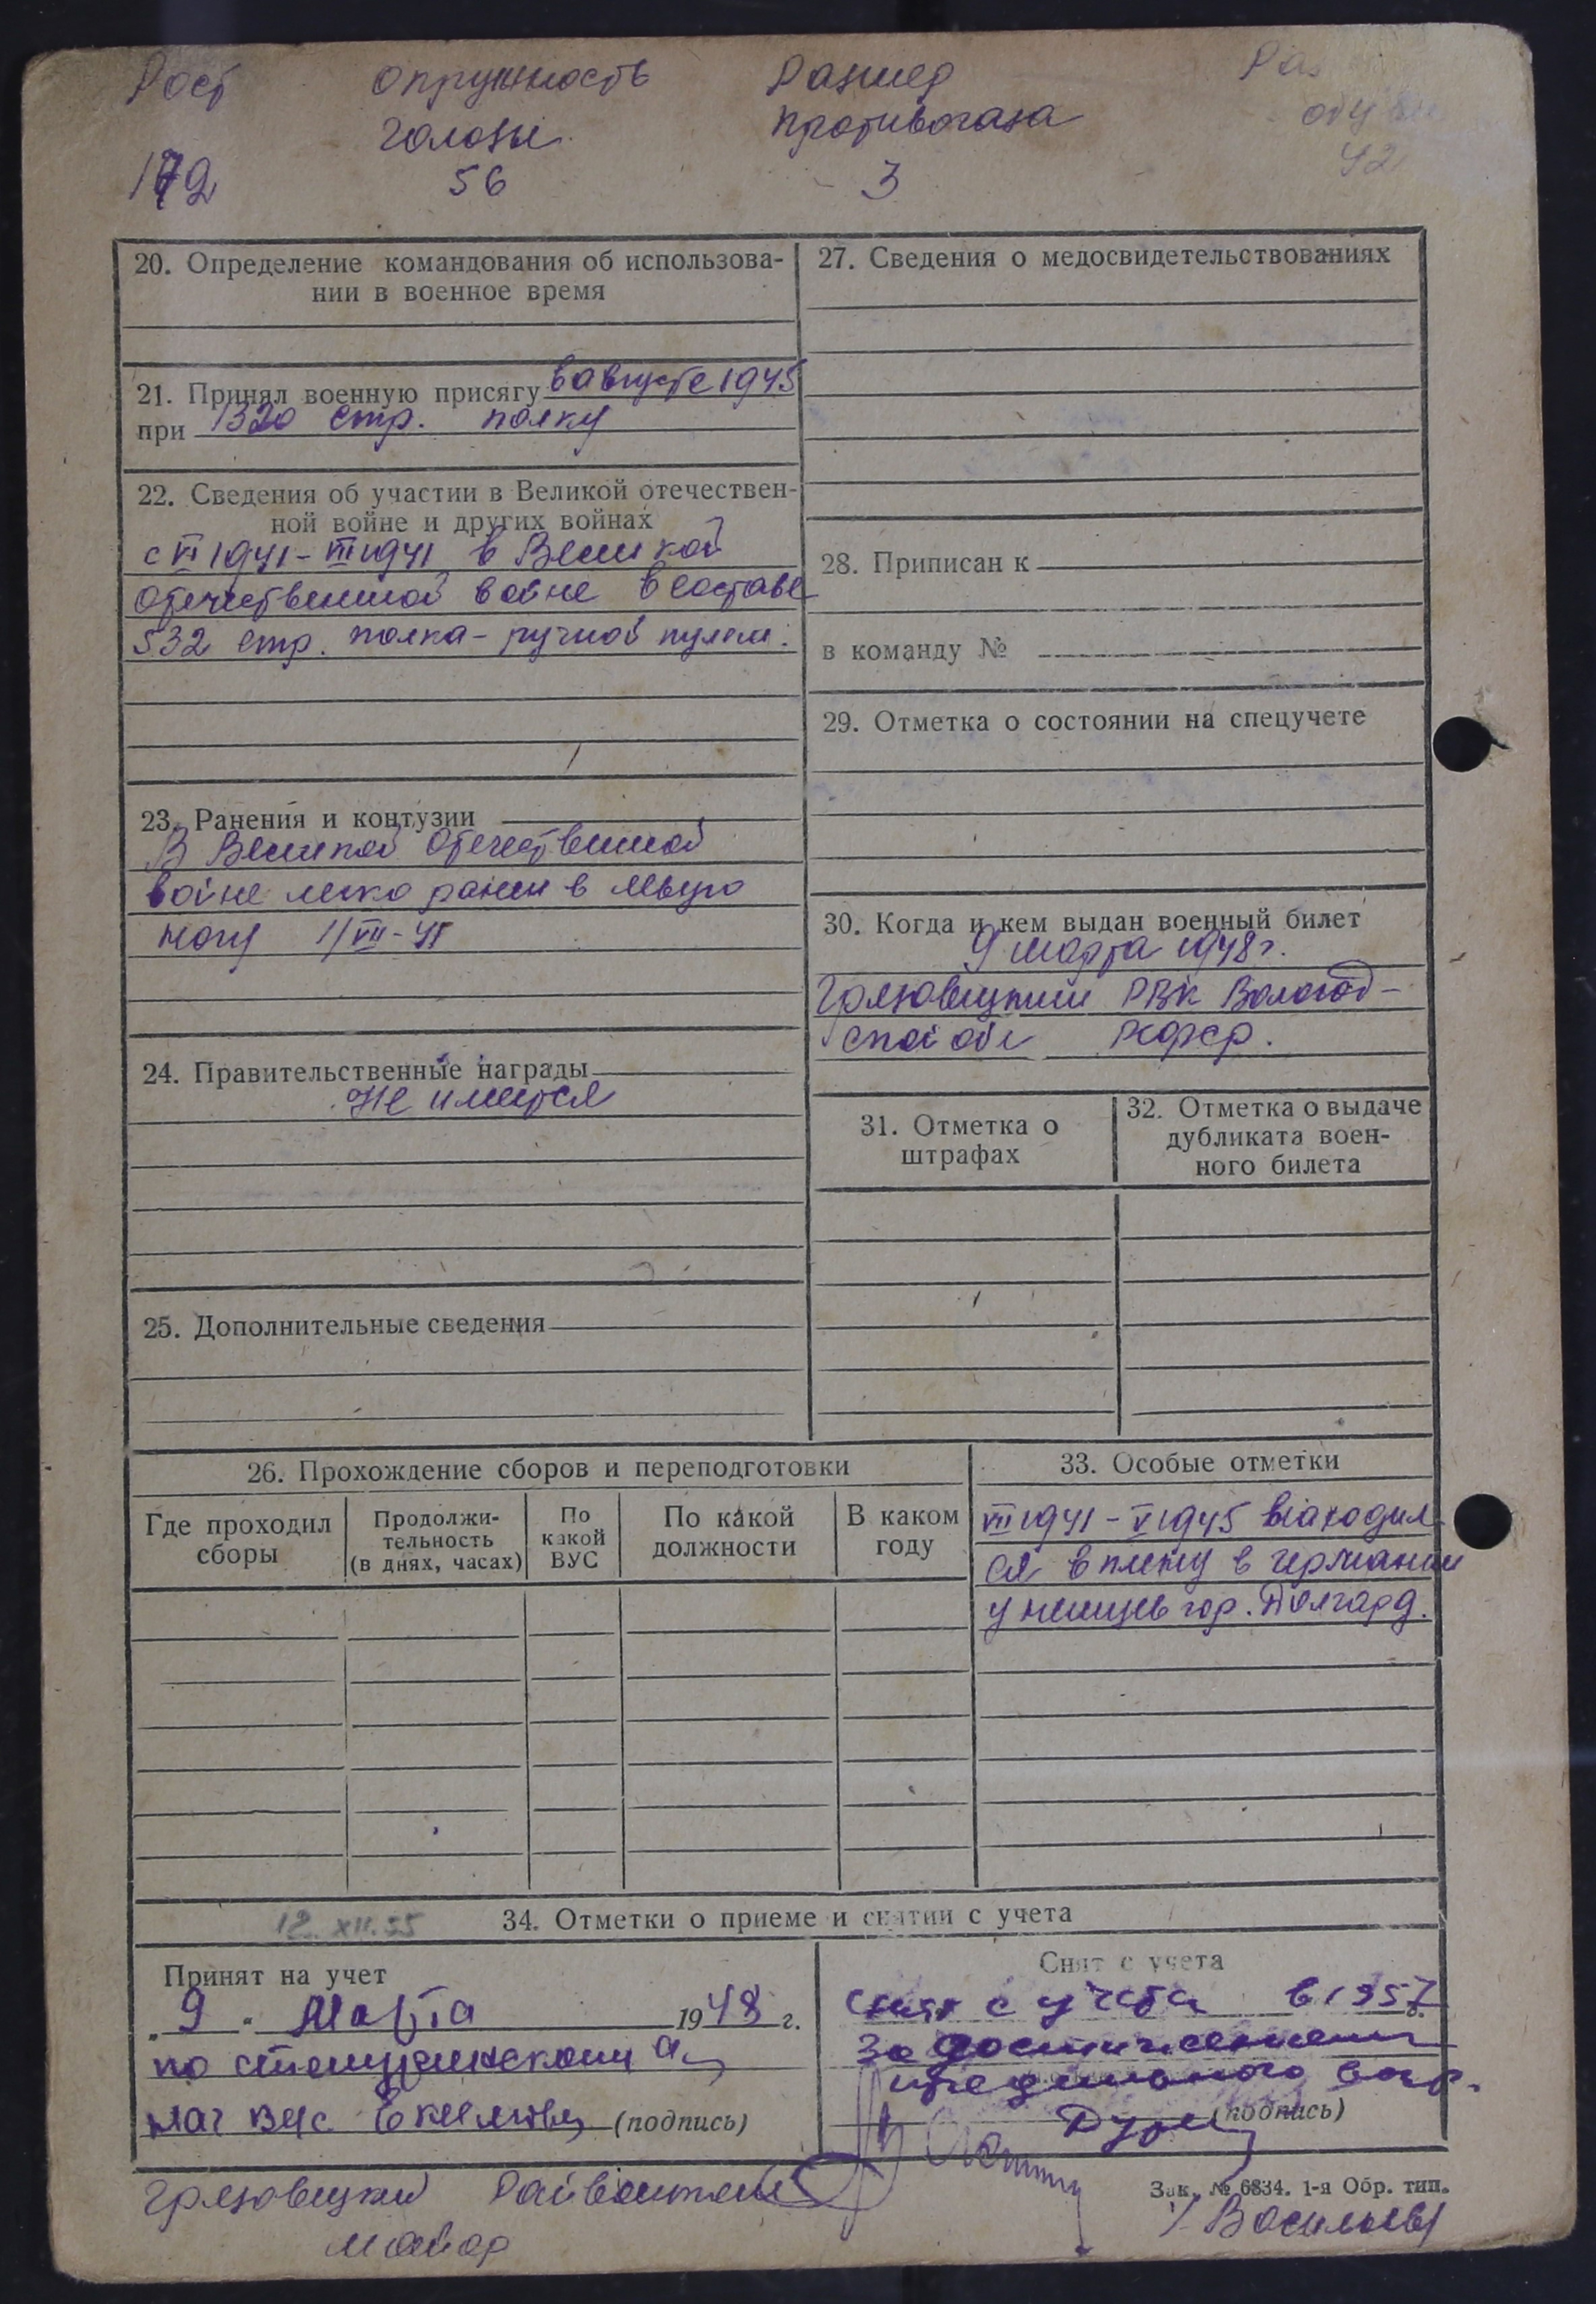 Рост Окружность Размер Раз
головы противогаза обуви
172 56 3 42
20. Определение командования об использова-
нии в военное время
21. Принял военную присягу в августе 1945
при 1320 стр. полку
22. Сведения об участии в Великой отечествен-
ной войне и других войнах
с VI 1941 – VII 1941 в Великой
Отечественной войне в составе
532 стр. полка – ручной пулем.
23. Ранения и контузии
В Великой Отечественной
войне легко ранен в левую
ногу 1/VII-41
24. Правительственные награды
Не имеется
25. Дополнительные сведения
27. Сведения о медосвидетельствованиях
28. Приписан к
в команду №
29. Отметка о состоянии на спецучете
30. Когда и кем выдан военный билет
9 марта 1948 г.
Грязовецким РВК Вологод-
ской обл РСФСР.
31. Отметка о
штрафах
32. Отметка о выдаче
дубликата воен-
ного билета
26. Прохождение сборов и переподготовки
Где проходил
сборы
Продолжи-
тельность
(в днях, часах)
По
какой
ВУС
По какой
должности
В каком
году
33. Особые отметки
VII 1941 – V 1945 находил
ся в плену в Германии
у немцев гор.
12.XII.55
34. Отметки о приеме и снятии с учета
Принят на учет
„9" Марта 1948 г.
по
нач ВУС (подпись)
Снят с учета
Снят с учета в 1957 г.
За достижением
предельного возр.
(подпись)
Грязовецкий Райвоенком
майор
Зак. № 6834. 1-я Обр. тип.
/Васильев/